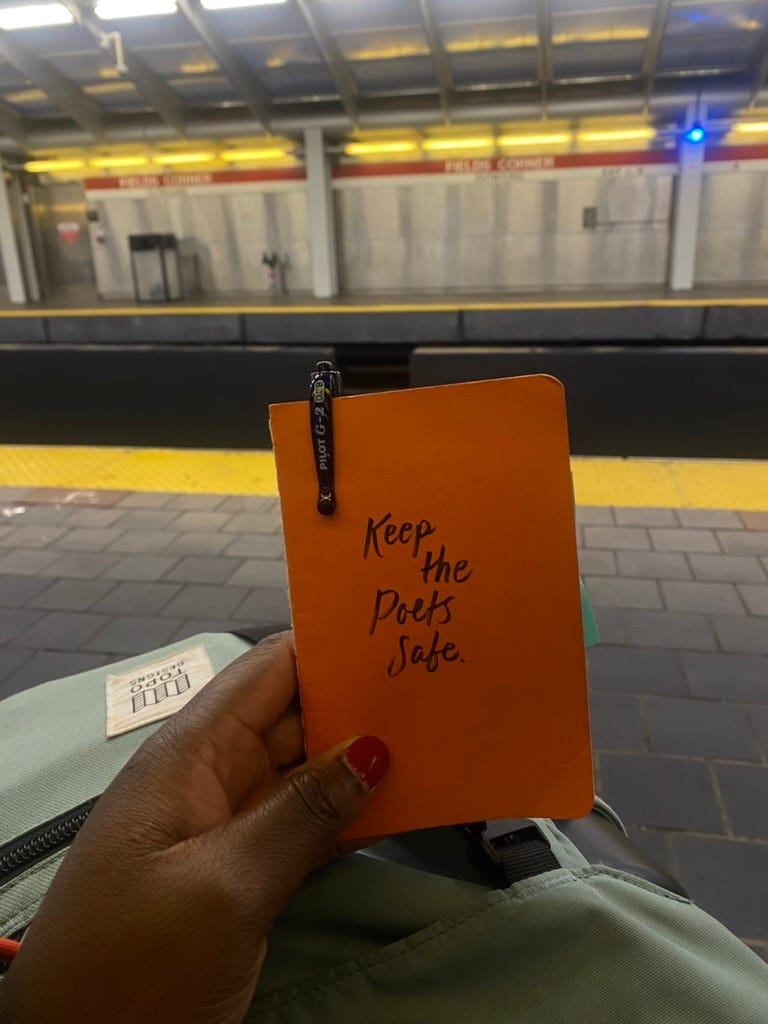 FIELDS CORNER
FIELDS CORNER
PILOT G-2
Keep
the
Poets
Safe.
TOPO
DESIGNS